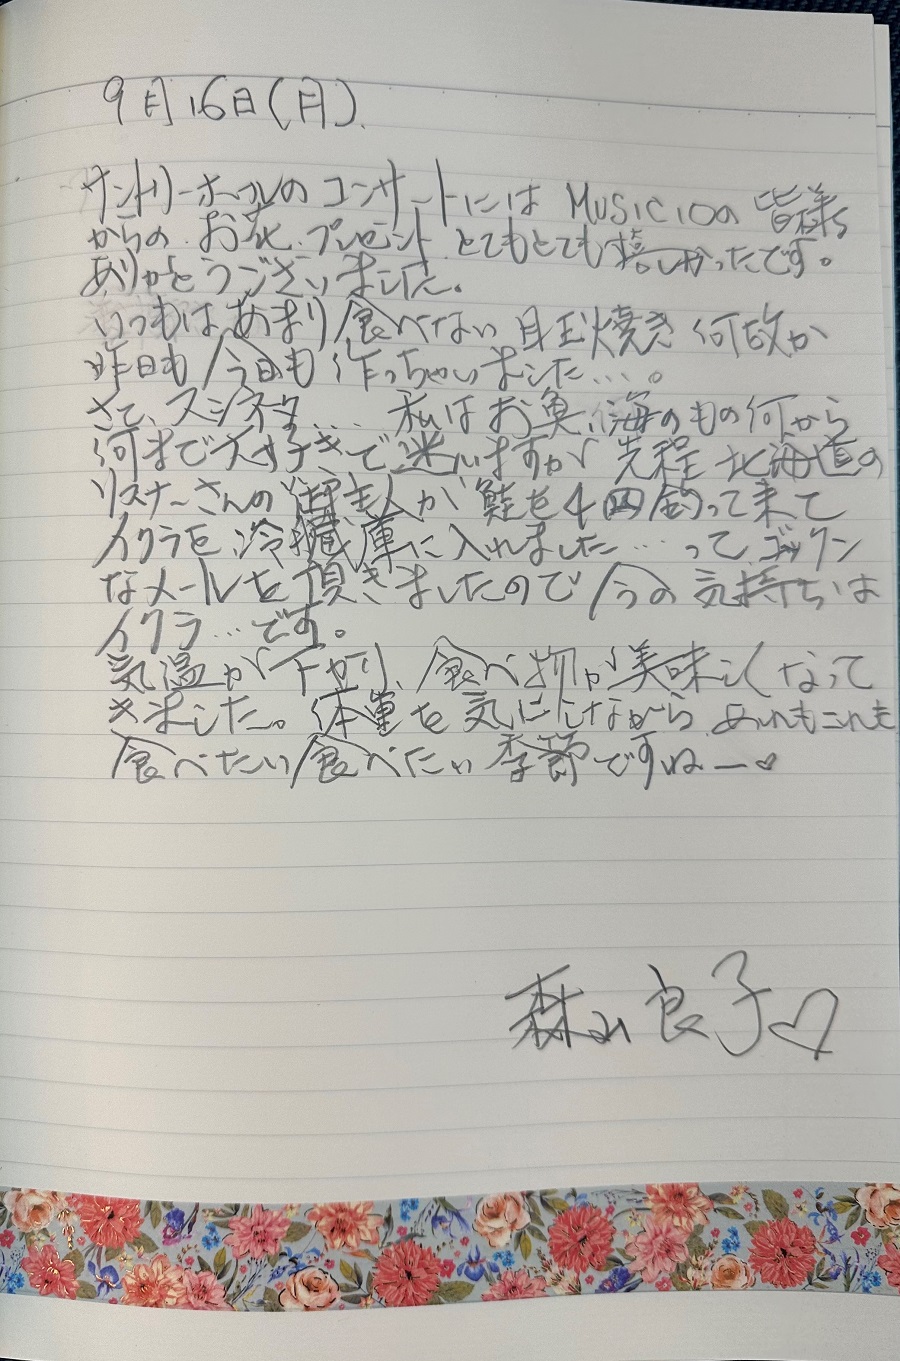 9月16日(月).
サントリーホールのコンサートには MUSIC10の 皆様
からの お花、プレゼント とてもとても嬉しかったです。
ありがとうございました。
いつもは あまり 食べない 目玉焼き 何故か
昨日も 今日も 作っちゃいました…。
さて、スシネタ… 私は お魚、海のもの何から
何まで大好きで 迷いますが 先程 北海道の
リスナーさんの 御主人が 鮭を4匹釣って来て
イクラを 冷蔵庫に 入れました… って ゴックン
なメールを 頂きましたので 今の 気持ちは
イクラ…です。
気温が下がり、食べ物が美味しくなって
きました。体重を 気にしながら あれもこれも
食べたい 食べたい 季節ですねー♡
森山良子♡